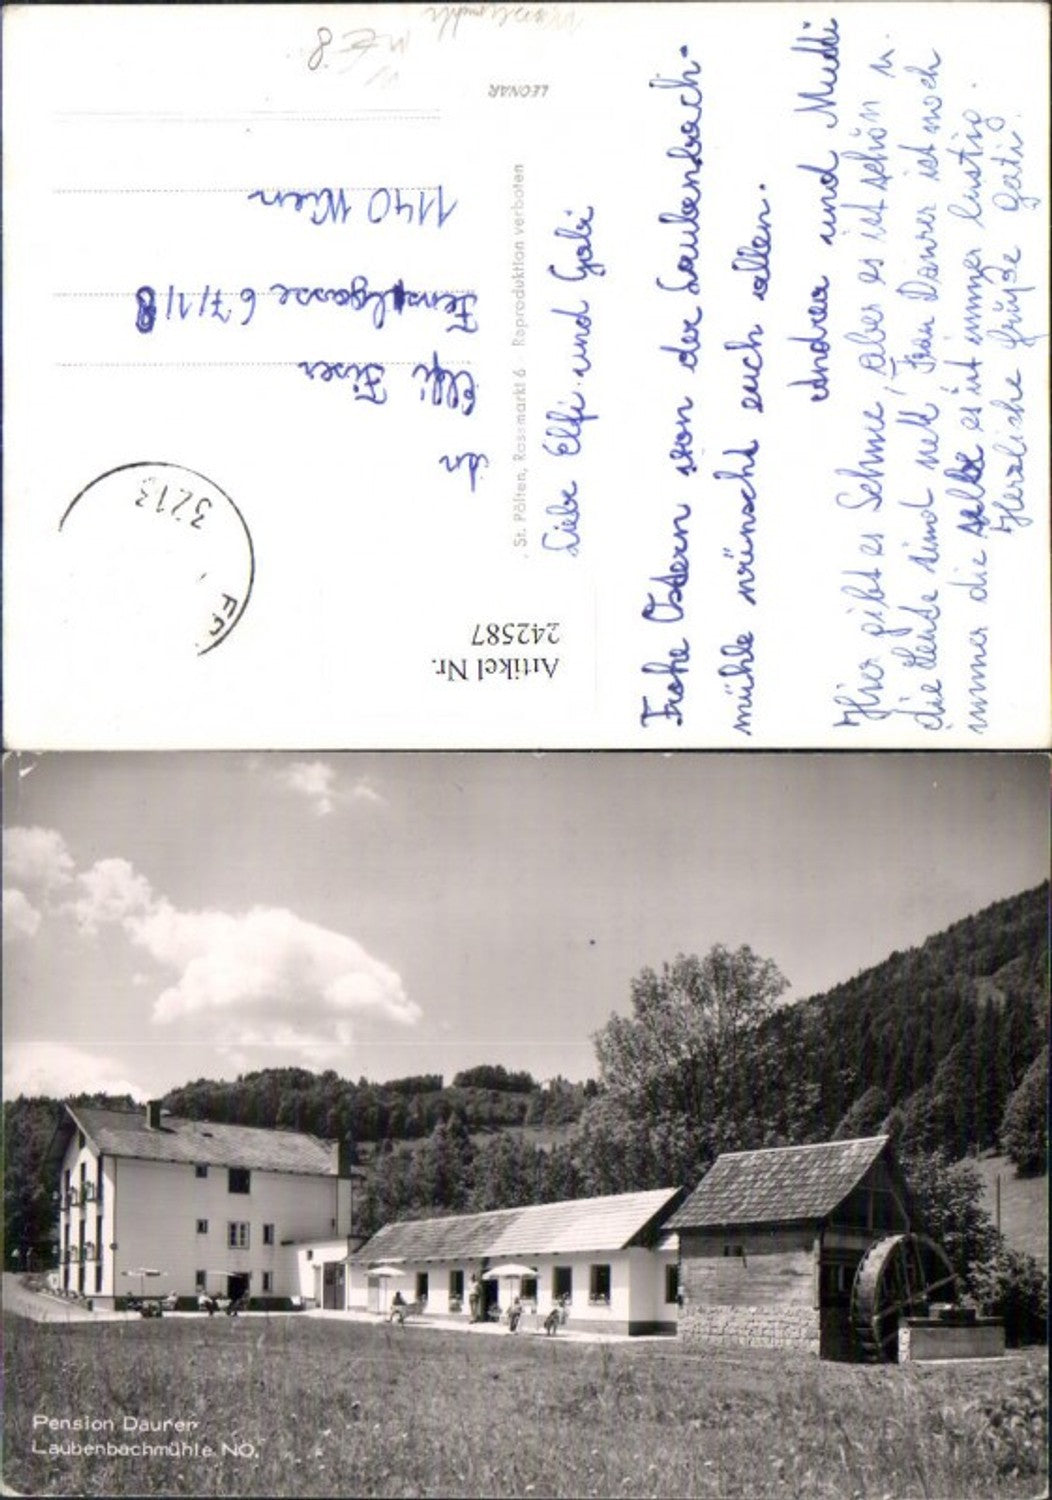 LEONAR
St. Pölten, Rossmarkt 6 · Reproduktion verboten
Liebe Elfi und Gabi
Frohe Ostern von der Laubenbach-
mühle wünscht euch allen.
Andrea und Mutti
Hier gibt es Schnee, aber es ist schön u.
die Leute sind nett, Frau Daurer ist noch
immer die selbe es ist immer lustig.
Herzliche Grüße Gati
An
Elfi
67/1/8
1140 Wien
3213
Artikel Nr.
242587
Pension Daurer
Laubenbachmühle NÖ.